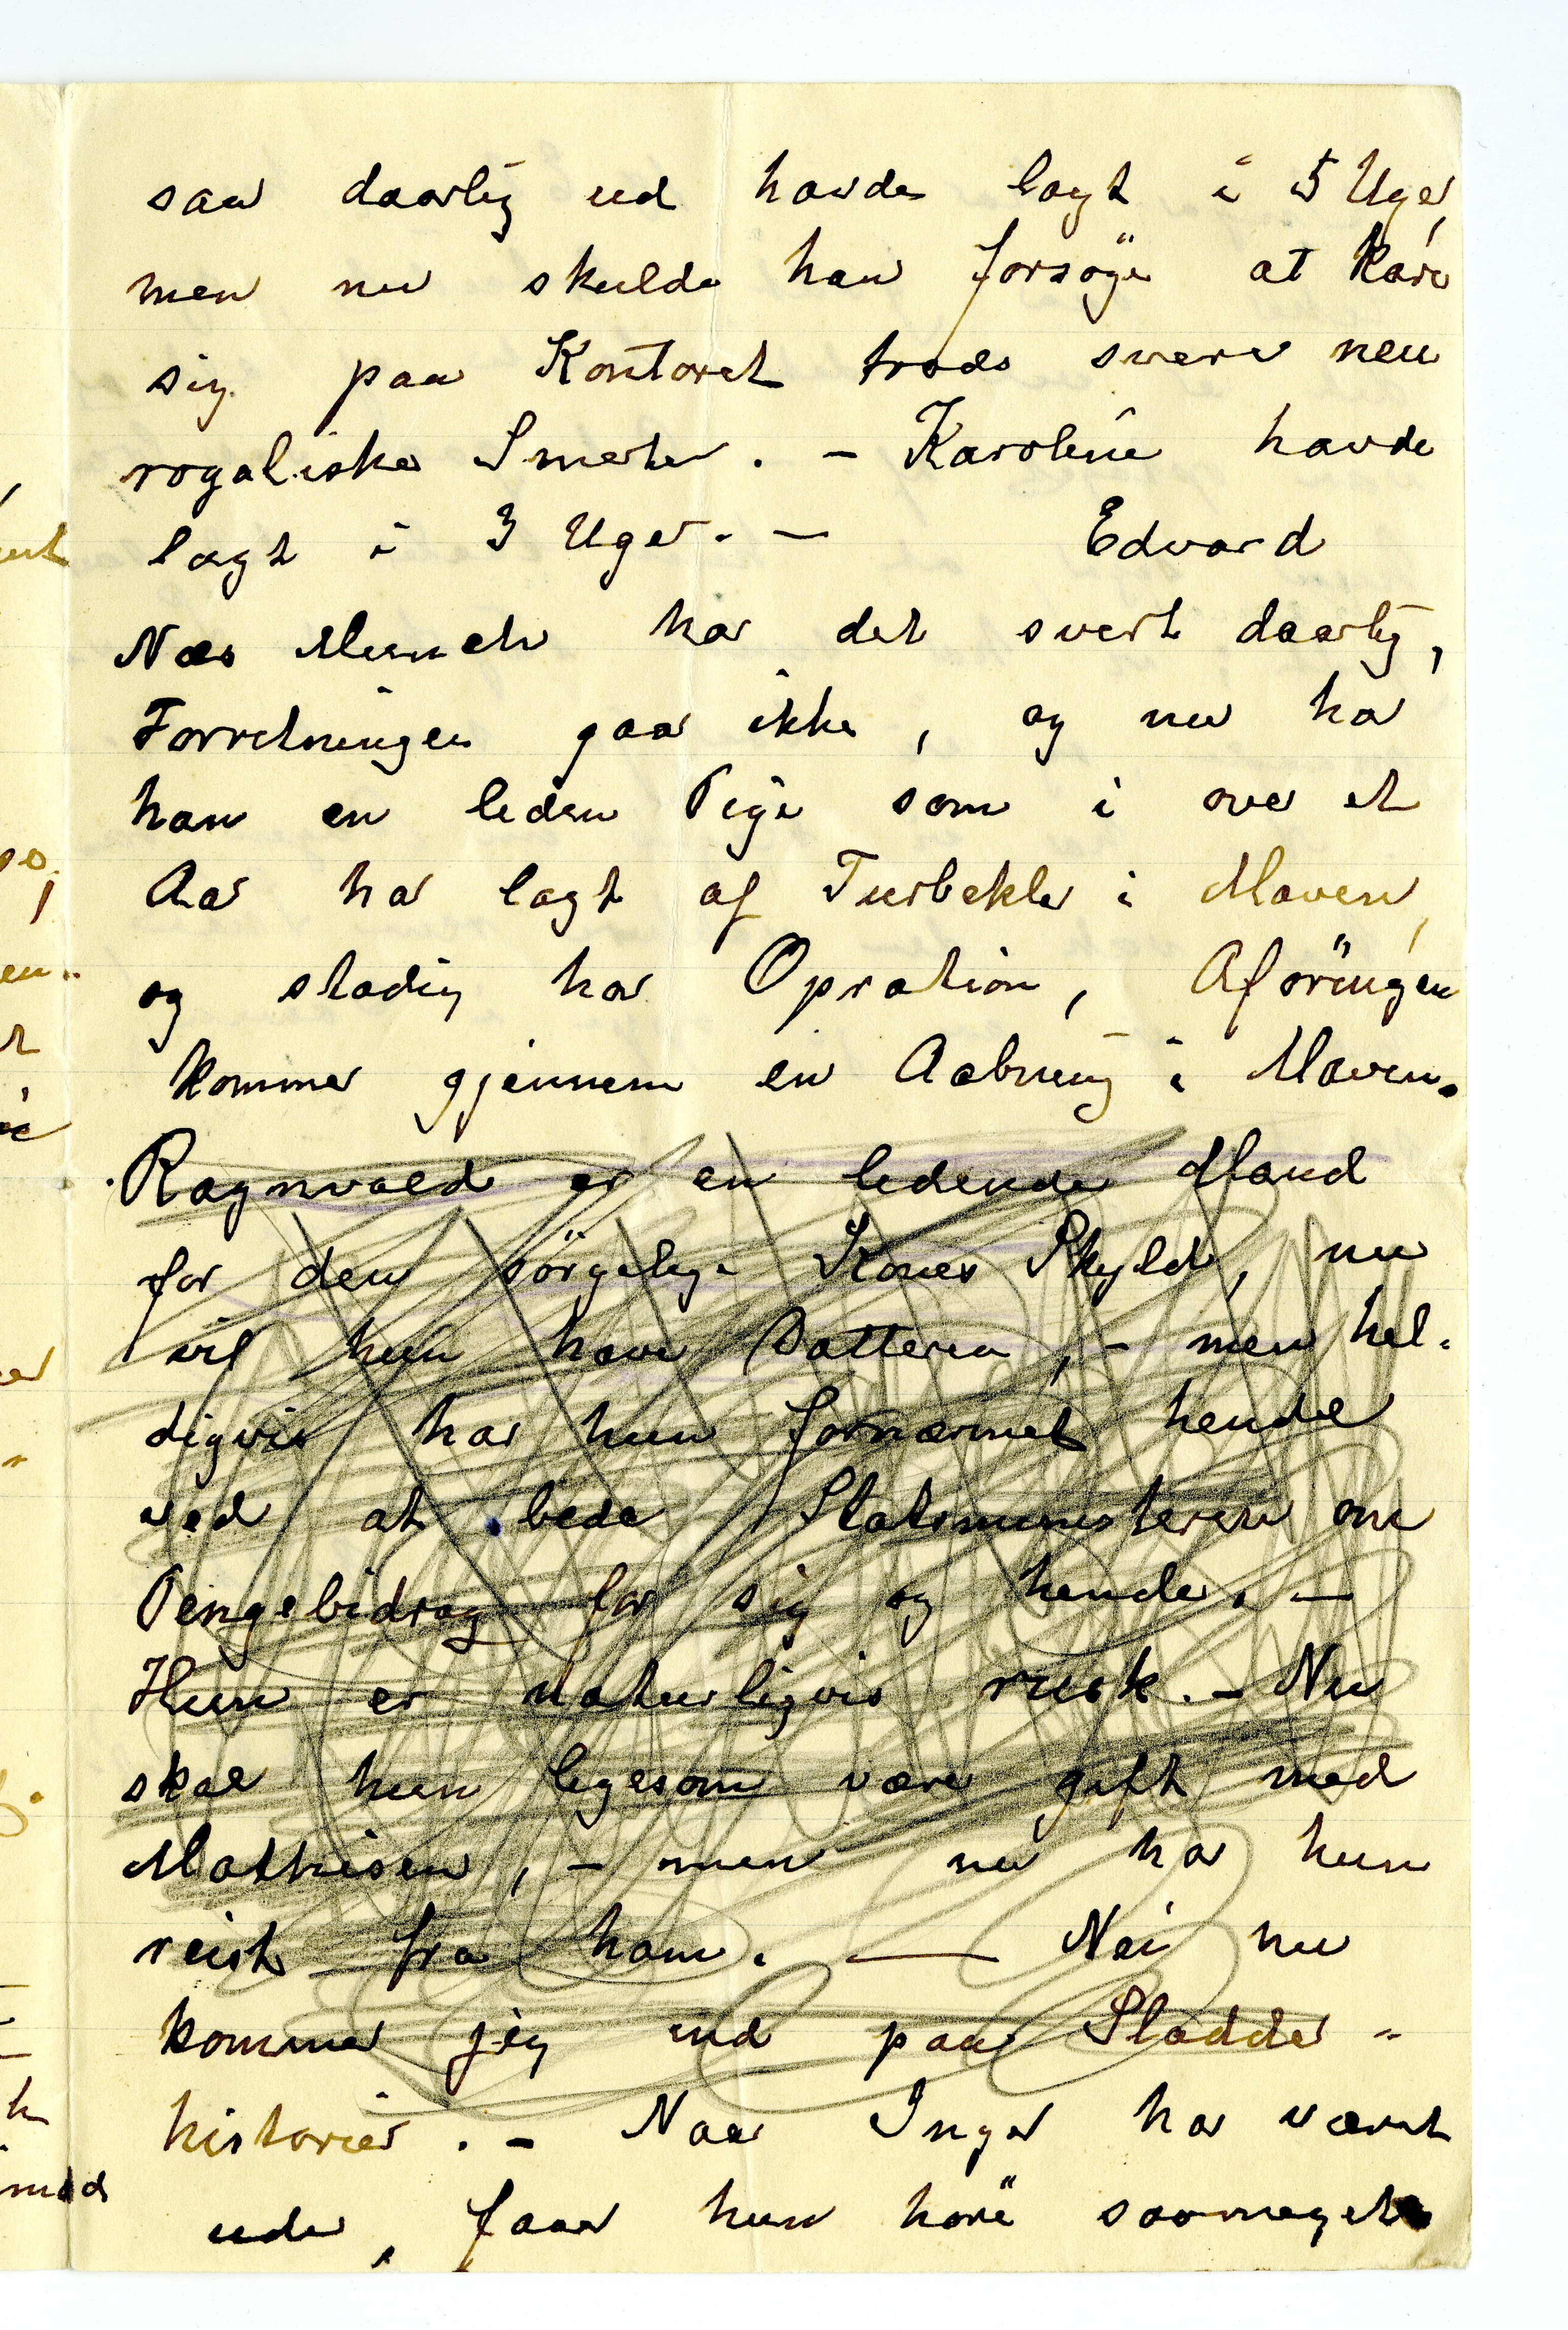 saa daarlig ud havde lagt i 5 Uger,
men nu skulde han forsöge at kare
sig paa Kontoret trods svere neu
rogaliske Smerter. – Karoline havde
lagt i 3 Uger. – Edvard
Næs Munch har det svert daarlig,
Forretningen gaar ikke, og nu har
han en liden Pige som i over et
Aar har lagt af Turbekler i Maven,
og stadig har Opration, Aföringen
kommer gjennem en Aabning i Maven.
Ragnvald er en ledende Mand
for den sörgelige Kones Skyld, nu
vil hun have Datteren, – men hel-
digvis har hun fornærmet hende
ved at bede Statsministeren om
Pengebidrag for sig og hende. –
Hun er naturligvis rusk. – Nu
skal hun ligesom være gift med
Mathisen, – men nu har hun
reist fra ham. — Nei nu
kommer jeg ind paa Sladder-
historier. – Naar Inger har været
ude, faar hun höre saameget